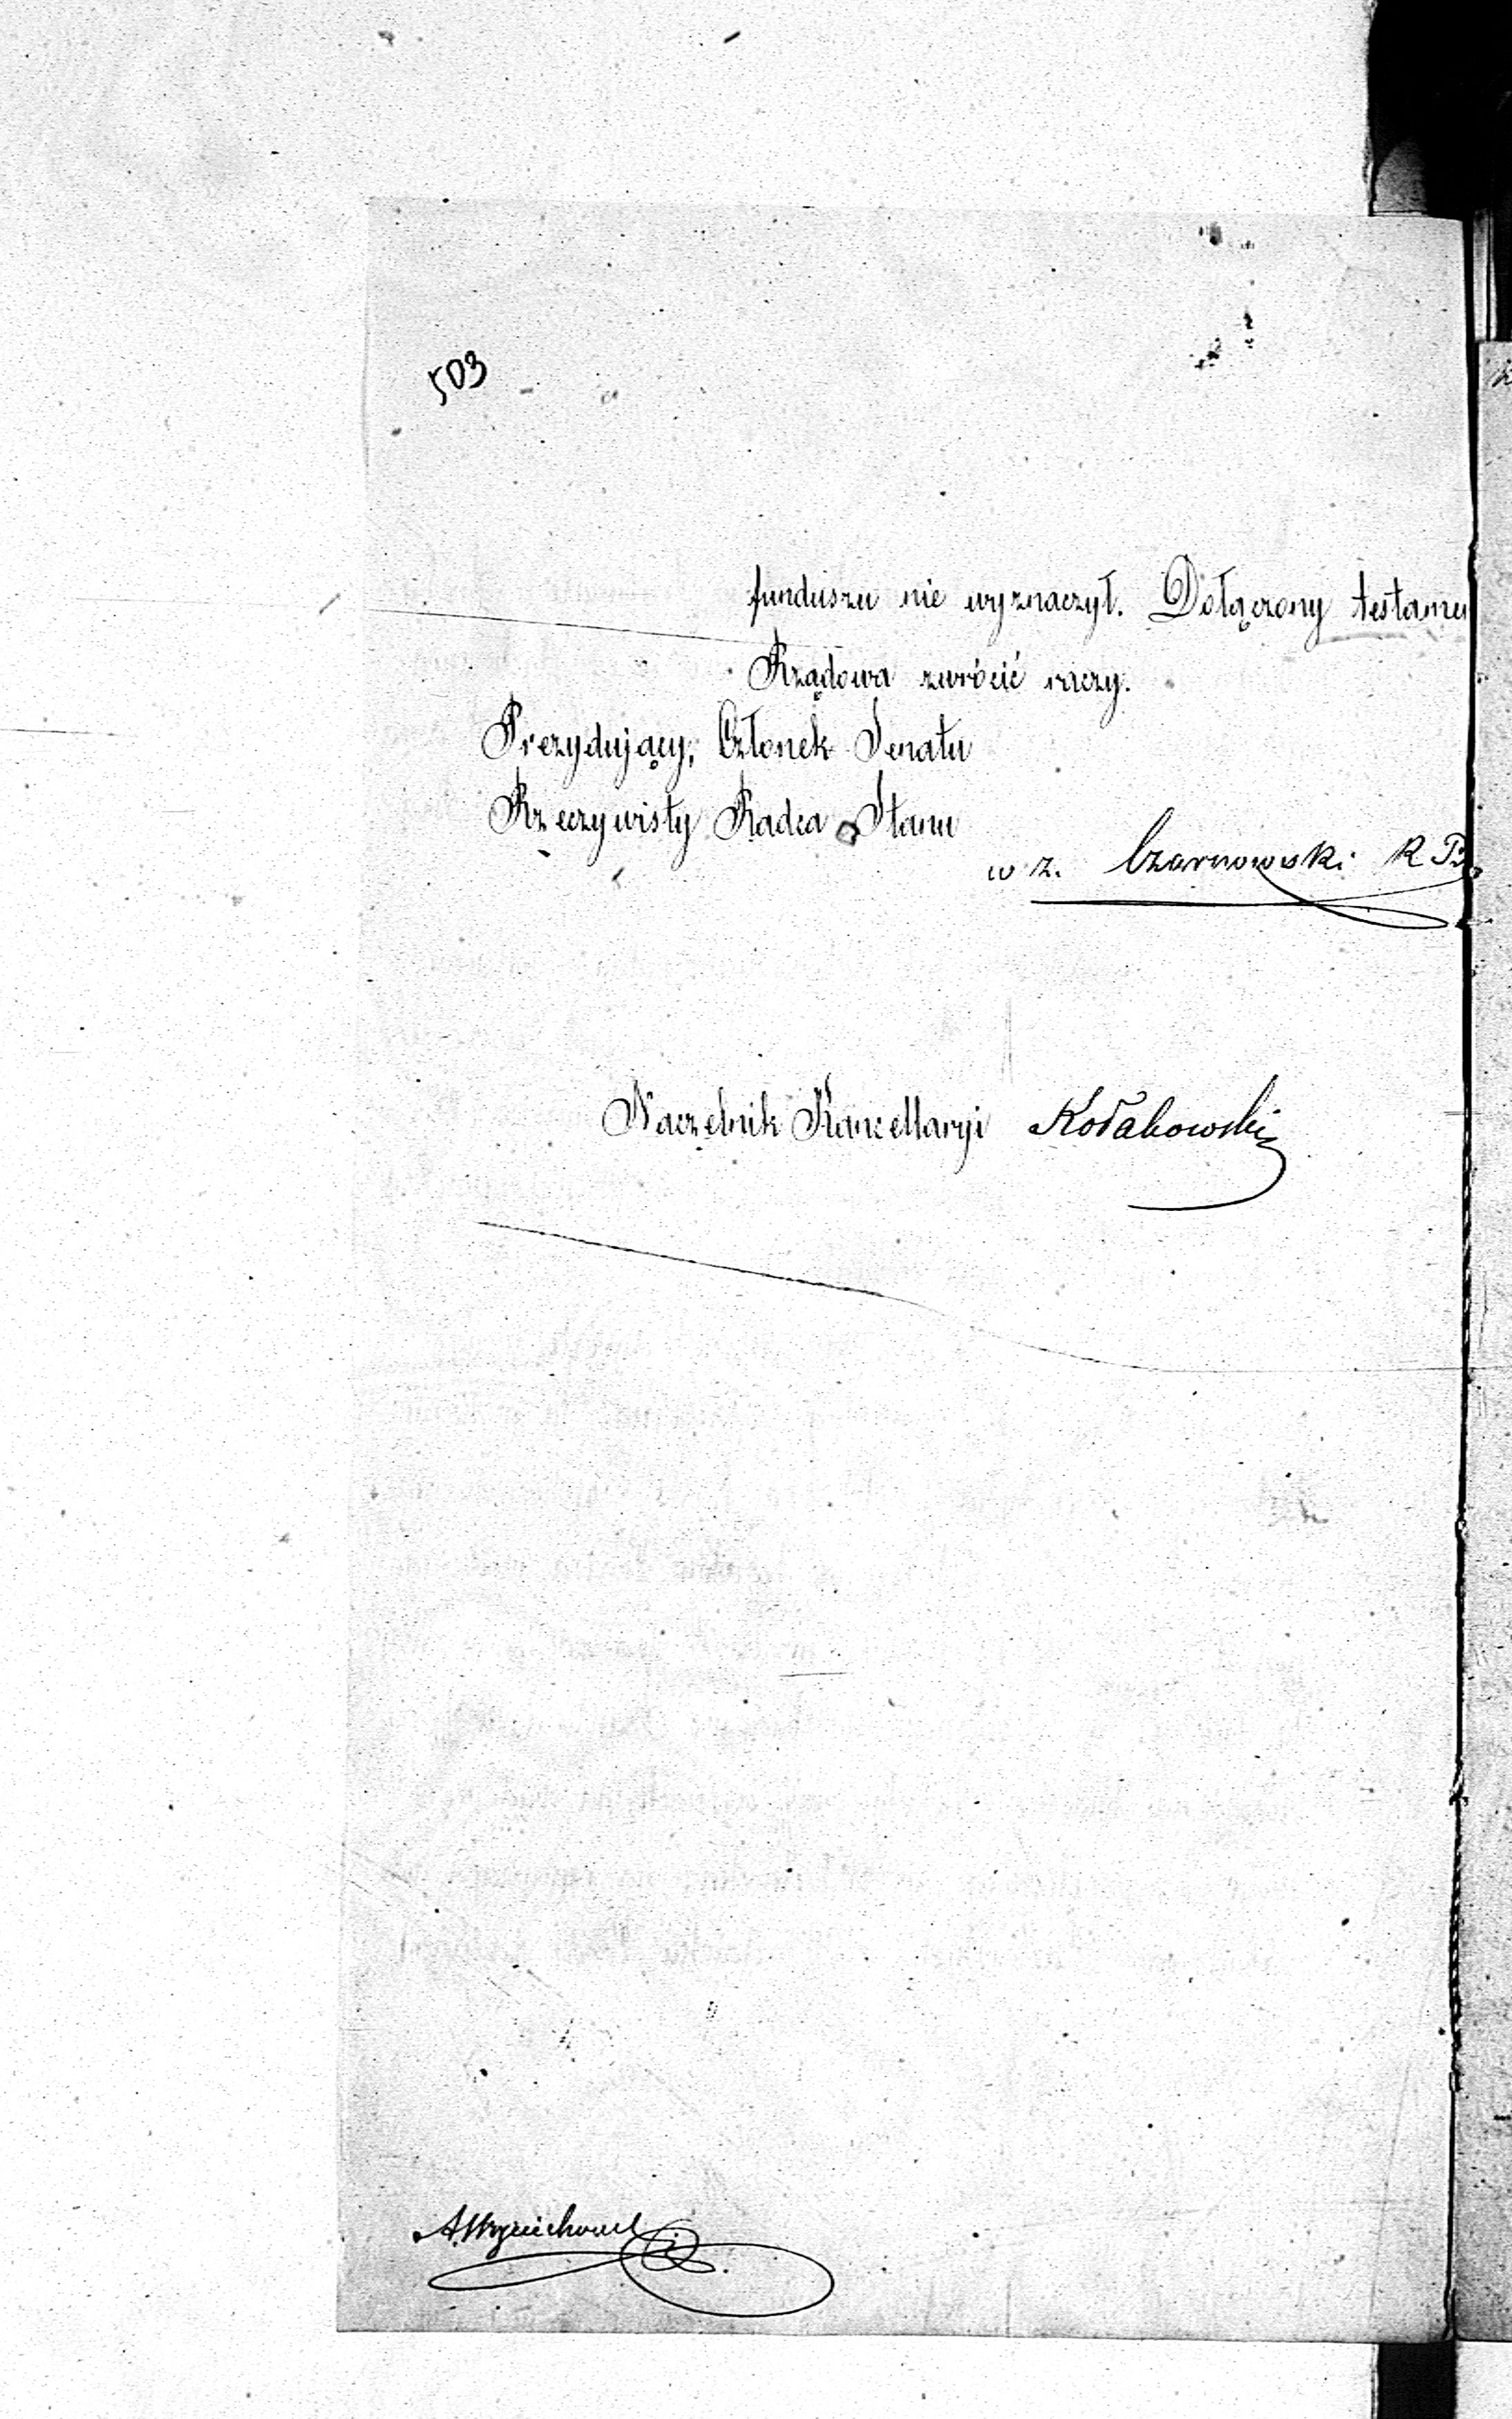 503
funduszu nie wyznaczył. Dołączony testamen
Rządowa zwrócić raczy.
Prezydujący, Członek Senatu
Rzeczywisty Radca Stanu
w z. Czarnowski R
Naczelnik Kancellaryi Kołakowski